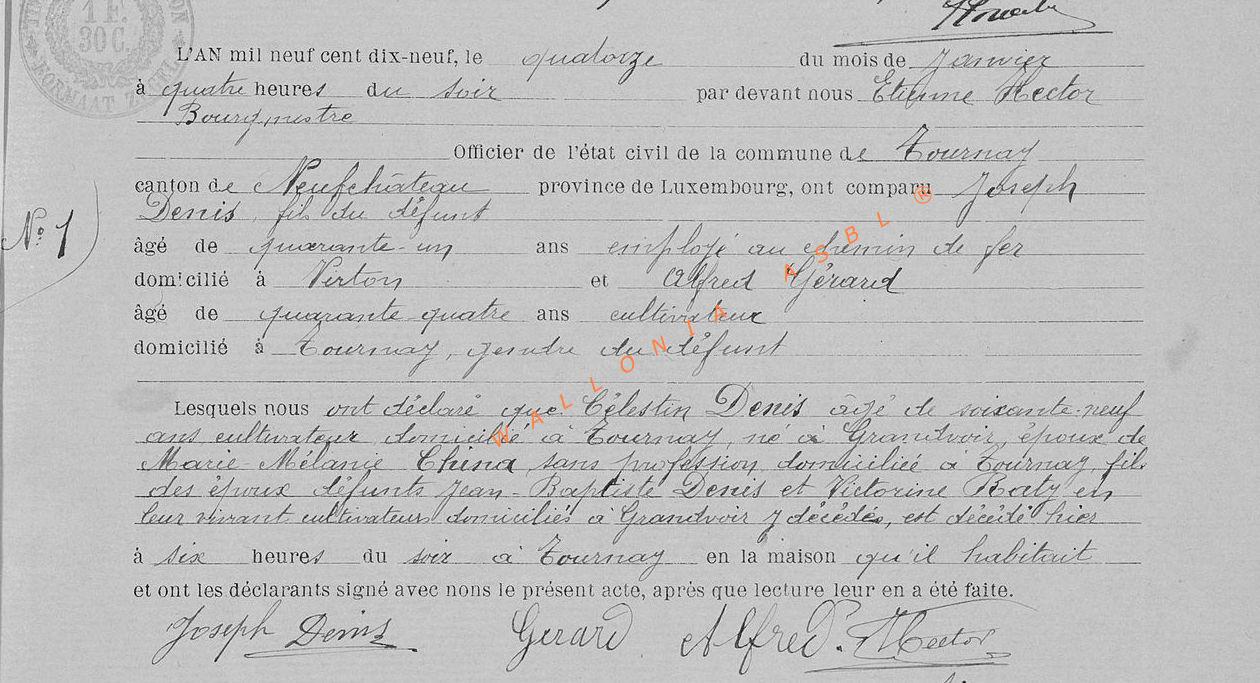 1 F.
30 C.
L'AN mil neuf cent dix-neuf, le quatorze du mois de Janvier
à quatre heures du soir par devant nous Etienne Hector
Bourgmestre
Officier de l'état civil de la commune de Tournay
canton de Neufchâteau province de Luxembourg, ont comparu Joseph
Denis, fils du défunt
N° 1
âgé de quarante-un ans employé au chemin de fer
domicilié à Virton et Alfred Gérard
âgé de quarante-quatre ans cultivateur
domicilié à Tournay, gendre du défunt
Lesquels nous ont déclaré que Célestin Denis âgé de soixante-neuf
ans cultivateur domicilié à Tournay, né à Grandvoir, époux de
Marie Mélanie China, sans profession domiciliée à Tournay, fils
des époux défunts Jean-Baptiste Denis et Victorine Raty en
leur vivant cultivateurs domiciliés à Grandvoir y décédés, est décédé hier
à six heures du soir à Tournay en la maison qu'il habitait
et ont les déclarants signé avec nous le présent acte, après que lecture leur en a été faite.
Joseph Denis Gerard Alfred. Hector
WALLONIA ASBL ®